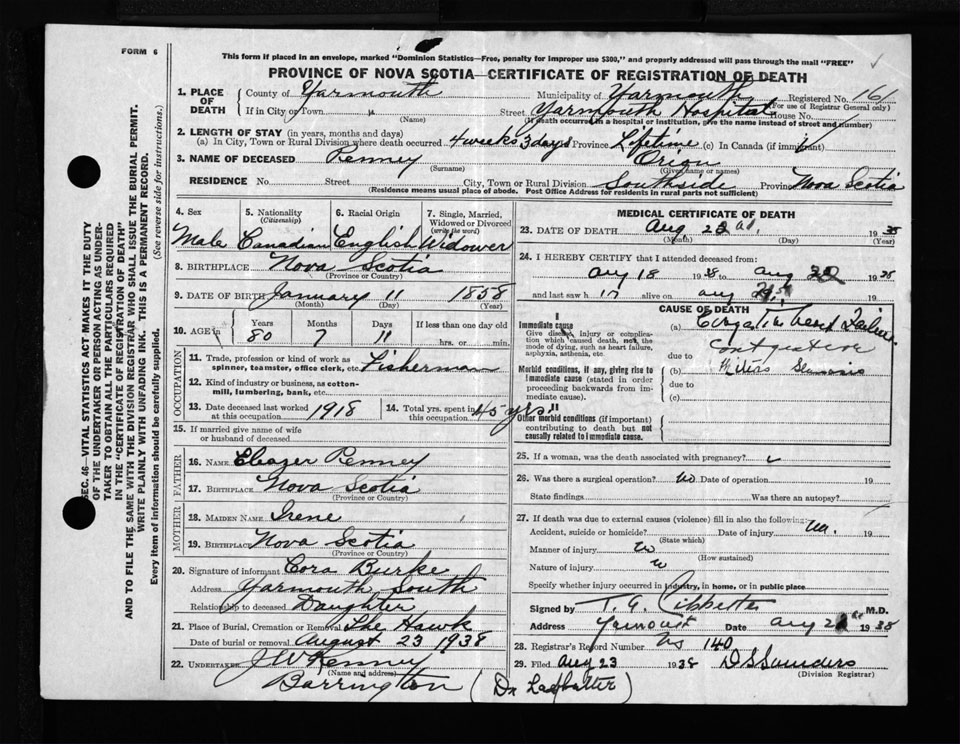 FORM 6
This form if placed in an envelope, marked "Dominion Statistics—Free, penalty for improper use $300," and properly addressed will pass through the mail "FREE"
PROVINCE OF NOVA SCOTIA—CERTIFICATE OF REGISTRATION OF DEATH
1. PLACE OF DEATH
County of Yarmouth Municipality of Yarmouth Registered No. 161
(For use of Registrar General only)
If in City or Town (Name) Street Yarmouth Hospital House No.
(If death occurred in a hospital or institution, give the name instead of street and number)
2. LENGTH OF STAY (in years, months and days)
(a) In City, Town or Rural Division where death occurred 4 weeks 3 days Province Lifetime (c) In Canada (if immigrant)
3. NAME OF DECEASED Penney Orion
(Surname) (Given name or names)
RESIDENCE No. Street City, Town or Rural Division Southside Province Nova Scotia
(Residence means usual place of abode. Post Office Address for residents in rural parts not sufficient)
4. Sex Male
5. Nationality (Citizenship) Canadian
6. Racial Origin English
7. Single, Married, Widowed or Divorced (write the word) Widower
8. BIRTHPLACE Nova Scotia
(Province or Country)
9. DATE OF BIRTH January 11 1858
(Month) (Day) (Year)
10. AGE in Years 80 Months 7 Days 11 If less than one day old hrs. or min.
OCCUPATION
11. Trade, profession or kind of work as spinner, teamster, office clerk, etc. Fisherman
12. Kind of industry or business, as cotton-mill, lumbering, bank, etc.
13. Date deceased last worked at this occupation 1918
14. Total yrs. spent in this occupation 45 yrs
15. If married give name of wife or husband of deceased
FATHER
16. Name Eleazer Penney
17. Birthplace Nova Scotia
(Province or Country)
MOTHER
18. Maiden Name Irene
19. Birthplace Nova Scotia
(Province or Country)
20. Signature of informant Cora Burke
Address Yarmouth South
Relationship to deceased Daughter
21. Place of Burial, Cremation or Removal The Hawk
Date of burial or removal August 23 1938
22. Undertaker J W Kenney
(Name and address)
Barrington
MEDICAL CERTIFICATE OF DEATH
23. DATE OF DEATH Aug 22 19
(Month) (Day) (Year)
24. I HEREBY CERTIFY that I attended deceased from:
Aug 18 1938 to Aug 1938
and last saw h alive on Aug 19
CAUSE OF DEATH
I
Immediate cause
Give disease, injury or complication which caused death, not the mode of dying, such as heart failure, asphyxia, asthenia, etc.
(a) Heart Failure
due to
Morbid conditions, if any, giving rise to immediate cause (stated in order proceeding backwards from immediate cause).
(b)
due to
(c)
II
Other morbid conditions (if important) contributing to death but not causally related to immediate cause.
25. If a woman, was the death associated with pregnancy?
26. Was there a surgical operation? no Date of operation 19
State findings Was there an autopsy?
27. If death was due to external causes (violence) fill in also the following:
Accident, suicide or homicide? Date of injury 19
(State which)
Manner of injury
(How sustained)
Nature of injury
Specify whether injury occurred in industry, in home, or in public place
Signed by M.D.
Address Date Aug 1938
28. Registrar's Record Number 140
29. Filed Aug 23 1938 D S Saunders
(Division Registrar)
SEC. 46—VITAL STATISTICS ACT MAKES IT THE DUTY
OF THE UNDERTAKER OR PERSON ACTING AS UNDERTAKER TO OBTAIN ALL THE PARTICULARS REQUIRED
IN THE "CERTIFICATE OF REGISTRATION OF DEATH"
AND TO FILE THE SAME WITH THE DIVISION REGISTRAR WHO SHALL ISSUE THE BURIAL PERMIT.
WRITE PLAINLY WITH UNFADING INK. THIS IS A PERMANENT RECORD.
Every item of information should be carefully supplied. (See reverse side for instructions.)